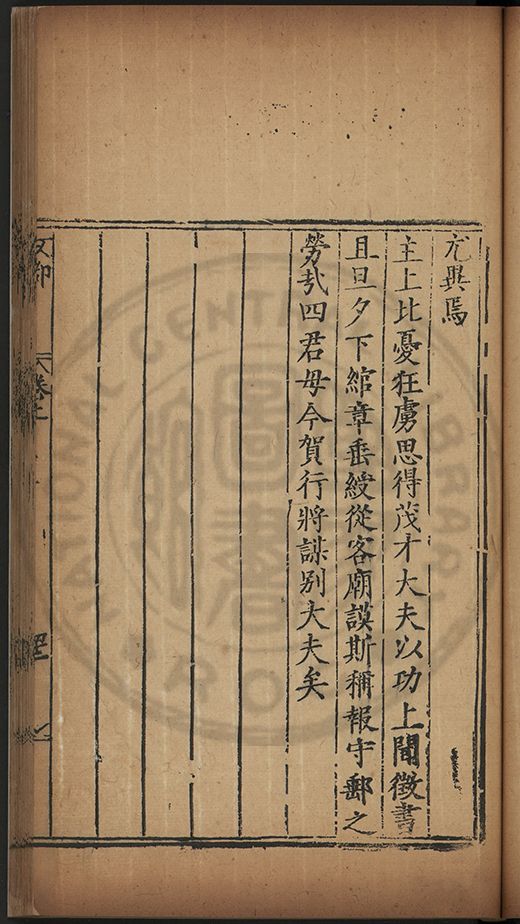 尢異焉
主上比憂狂虜思得茂才大夫以功上聞徵書
且旦夕下綰章垂綬從容廟謨斯稱報守郵之
勞哉四君毋今賀行將謀别大夫矣